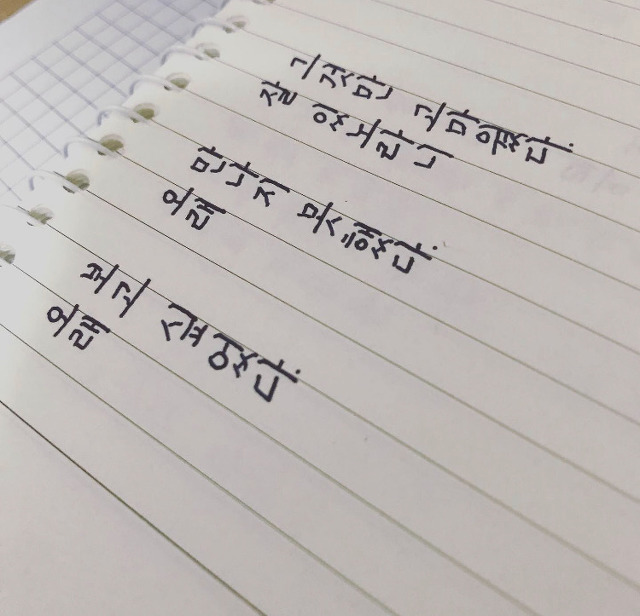 오래
보고 싶었다.
오래
만나지 못했다.
잘 있노라니
그것만 고마웠다.